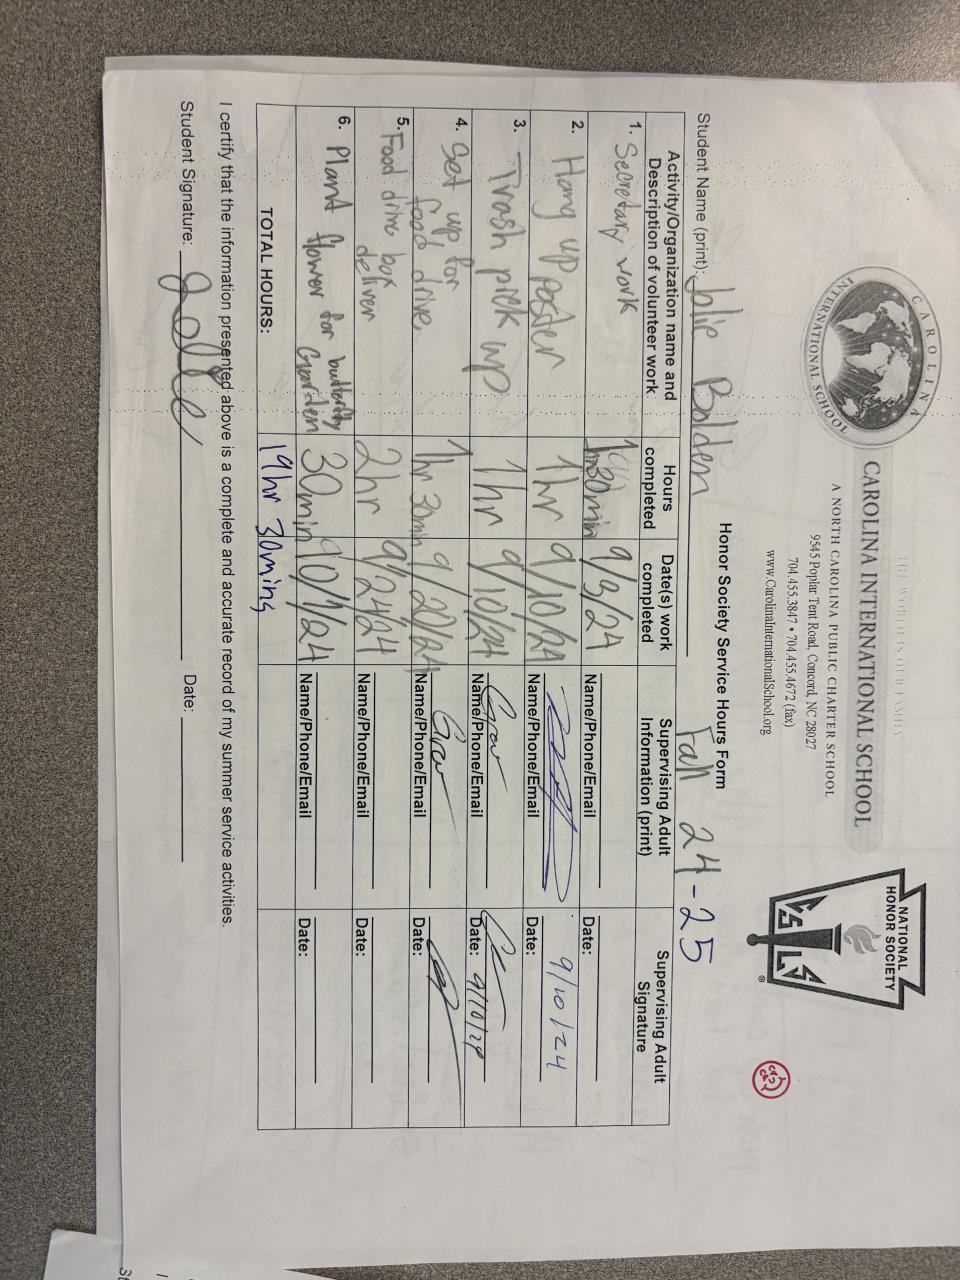 THE WORLD IS OUR FAMILY
CAROLINA INTERNATIONAL SCHOOL
A NORTH CAROLINA PUBLIC CHARTER SCHOOL
9545 Poplar Tent Road, Concord, NC 28027
704.455.3847 • 704.455.4672 (fax)
www.CarolinaInternationalSchool.org
CAROLINA
INTERNATIONAL SCHOOL
NATIONAL
HONOR SOCIETY
C S L S
®
Honor Society Service Hours Form
Fall 24-25
Student Name (print): Jolie Bolden
Activity/Organization name and Description of volunteer work
Hours completed
Date(s) work completed
Supervising Adult Information (print)
Supervising Adult Signature
1. Secretary work
30min
9/3/24
Name/Phone/Email
Date:
2. Hang up poster
1hr
9/10/24
Name/Phone/Email
9/10/24
Date:
3. Trash pick up
1hr
9/10/24
Name/Phone/Email
Date: 9/10/24
4. Set up for
food drive
1hr 30min
9/20/24
Name/Phone/Email
Date:
5. Food drive box
deliver
2hr
9/24/24
Name/Phone/Email
Date:
6. Plant flower for butterfly
Garden
30min
10/1/24
Name/Phone/Email
Date:
TOTAL HOURS:
19hr 30mins
I certify that the information presented above is a complete and accurate record of my summer service activities.
Student Signature:
Date: